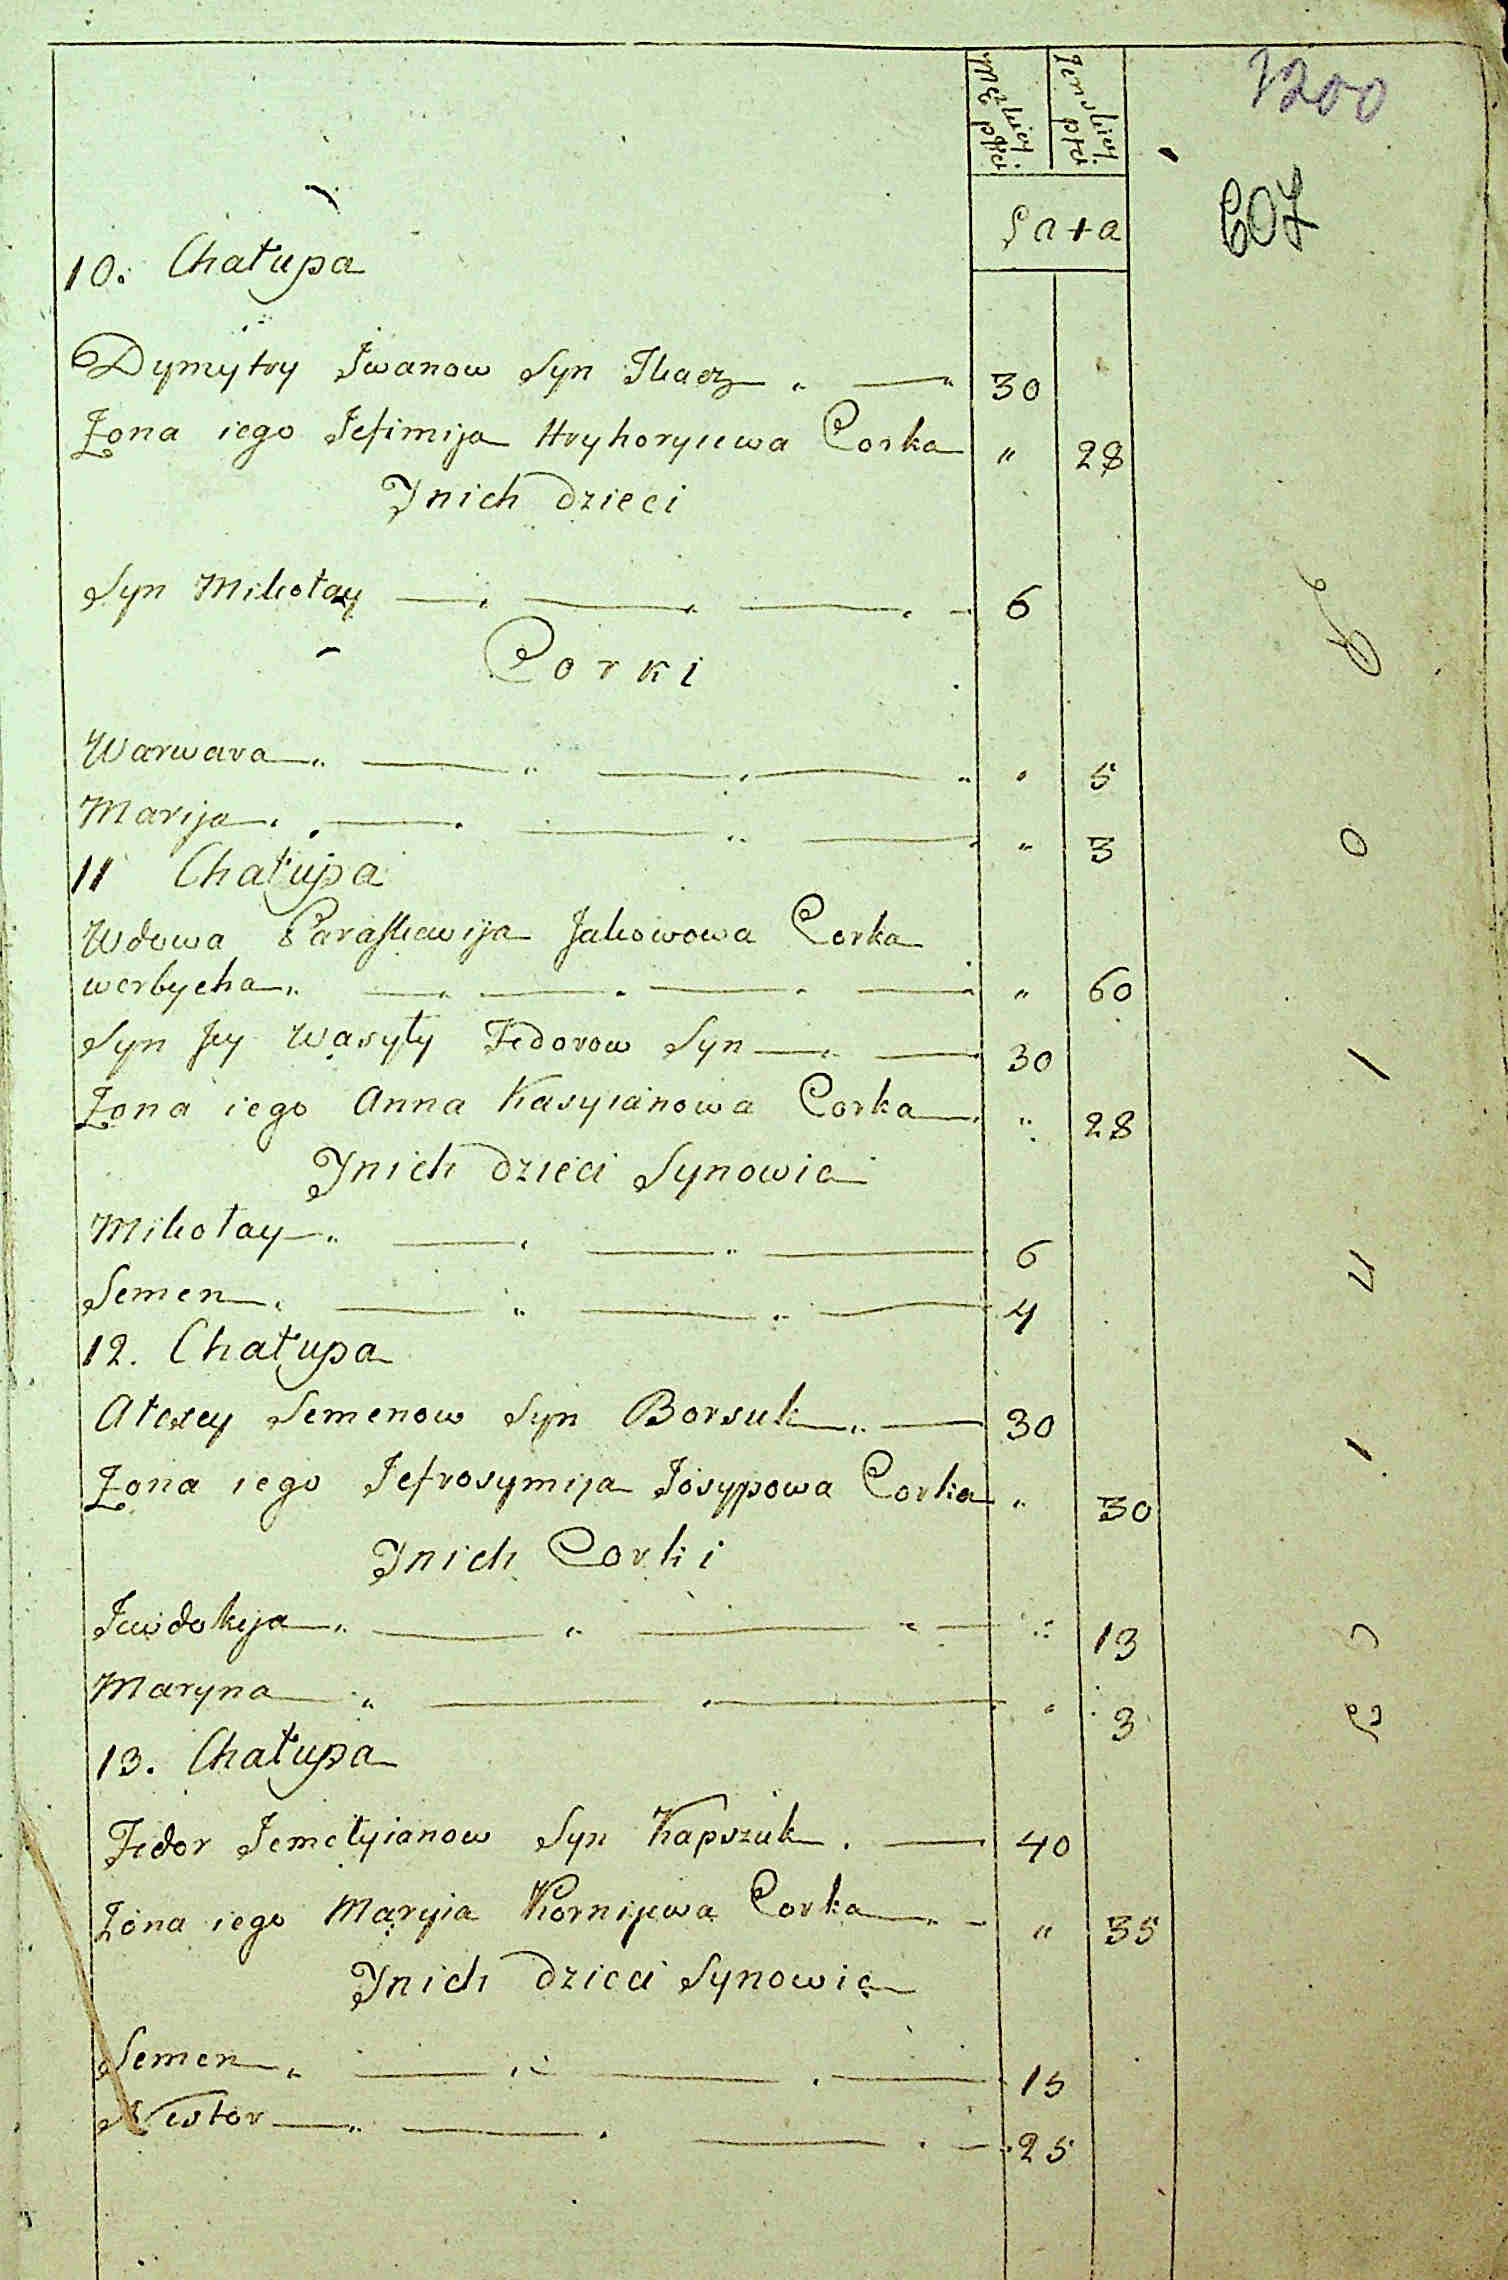 Męzkiej płci
Żenskiej płci
1200
607
Lata
10. Chałupa
Dymytry Iwanow Syn Tkacz 30
Żona iego Jefimija Hryhoryiewa Corka " 28
Jnich dzieci
Syn Mikołay 6
Corki
Warwara " 5
Marija " 3
11 Chałupa
Wdowa Paraskawija Jakowowa Corka
werbycha " 60
Syn Jey Wasyły Fedorow Syn 30
Żona iego Anna Kasyianowa Corka " 28
Jnich dzieci Synowie
Mikołay 6
Semen 4
12. Chałupa
Ałexey Semenow Syn Borsuk 30
Żona iego Jefrosymija Josypowa Corka " 30
Jnich Corki
Jewdokija " 13
Maryna " 3
13. Chałupa
Fedor Jemełyianow Syn Kapszuk 40
Żona iego Maryia Kornijewa Corka " 35
Jnich dzieci Synowie
Semen 15
Nestor 25